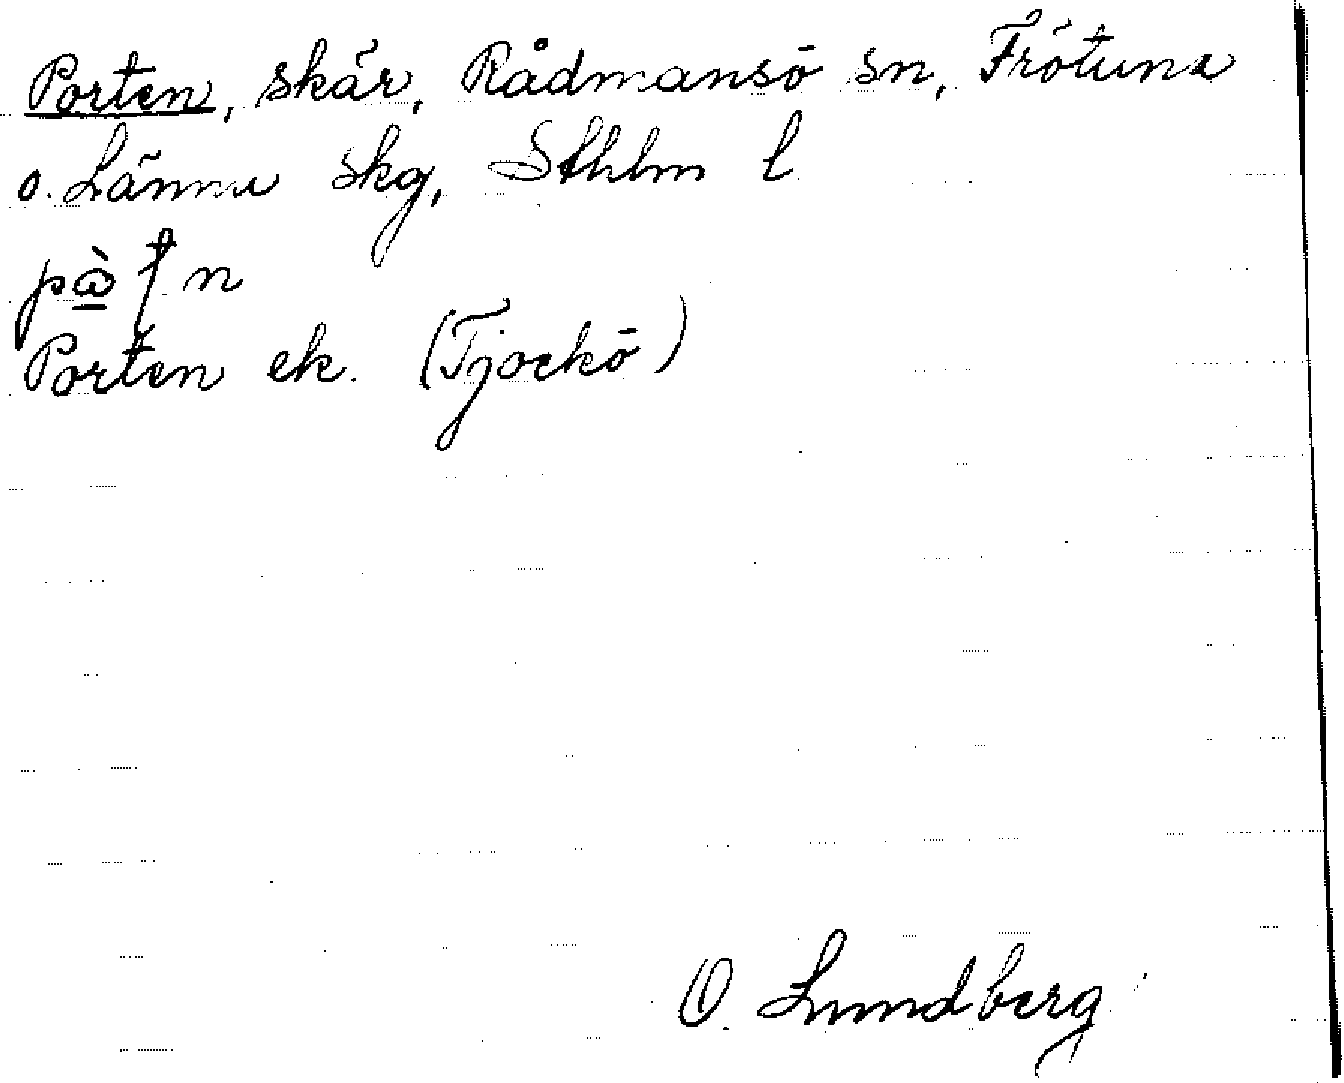 Porten, skär, Rådmansö sn, Frötuna
o. Länna skg, Sthlm l
Porten ek. (Tjockö)
O. Lundberg